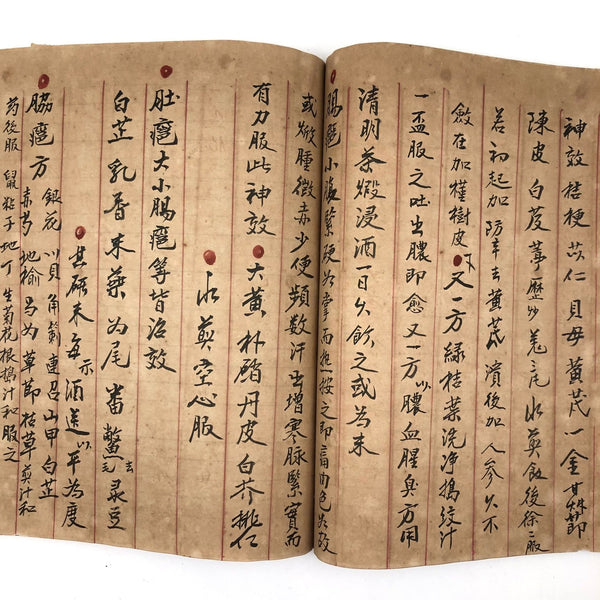 神效 桔梗 苡仁 貝母 黃芪 一金 甘草節
陳皮 白芨 葶歷炒 羌 水煎飯後徐〻服
若初起加防辛去黃芪 潰後加人參久不
斂在加槿樹皮 又一方綠桔葉洗净搗絞汁
一盃服之吐出膿即愈又一方以膿血腥臭方用
清明茶煅浸酒一日久飲之或為末
腸癰小腹緊硬如掌而熱按之即痛肉色如故
或焮腫微赤少便頻数汗出增寒脉緊實而
有力服此神效 大黃 朴硝 丹皮 白芥 桃仁
水煎空心服
肚癰大小腸癰等皆治效
白芷 乳香 末藥 為尾 番鱉去毛 彔豆
共硏末每示酒送以平為度
脇癰方 銀花 川貝 角刺 連召 山甲 白芷
赤芍 地榆 马勿 草節 枯草 煎汁和
药後服 鼠粘子 地丁 生菊花根搗汁和服之